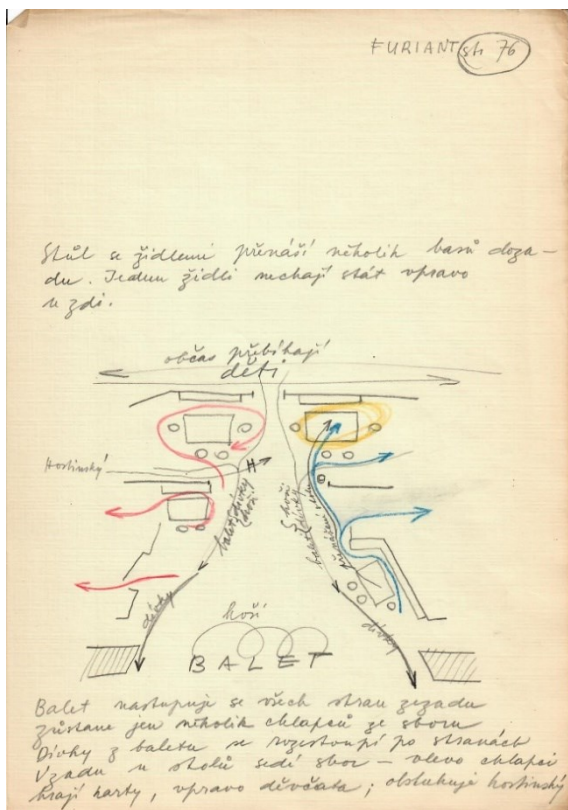 FURIANT str 76
Stůl se židlemi přenáší několik basů doza-
du. Jednu židli nechají stát vpravo
u zdi.
občas přebíhají
děti
Hostinský
H
1
balet dívky
hoši
5 hoši
dívky
balet
přenášení stolu
dívky
hoši
dívky
BALET
Balet nastupuje se všech stran zezadu
zůstane jen několik chlapců ze sboru
Dívky z baletu se rozestoupí po stranách
Vzadu u stolů sedí sbor – vlevo chlapci
hrají karty, vpravo děvčata; obsluhuje hostinský